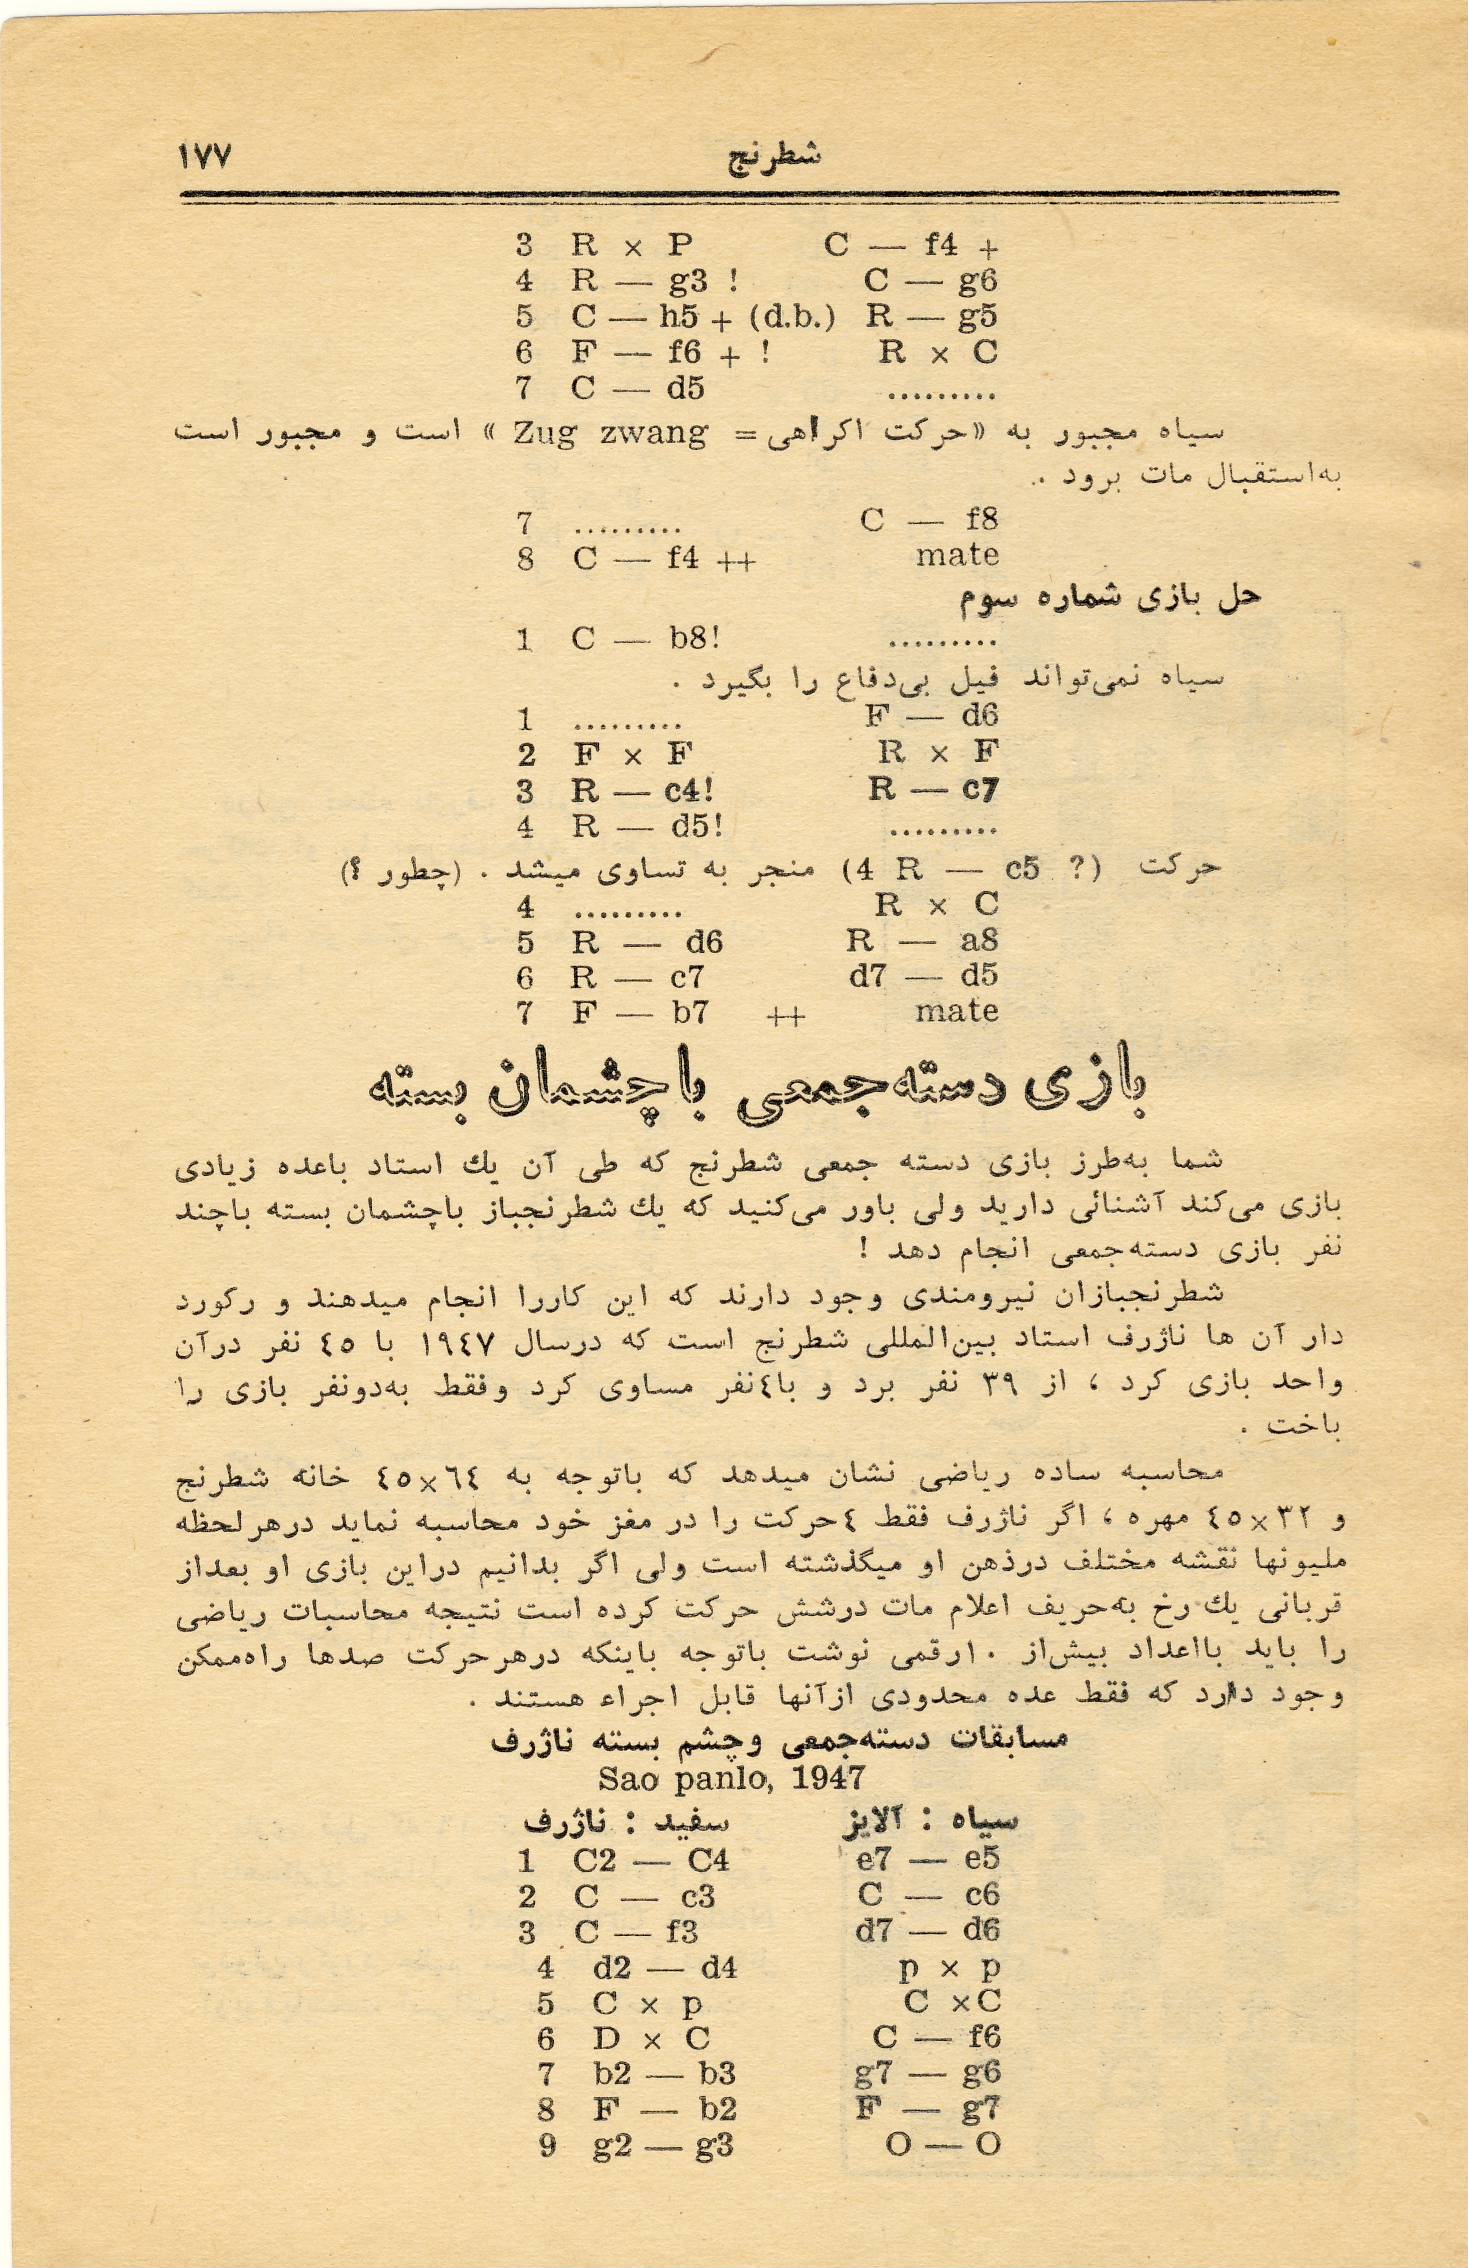 شطرنج ۱۷۷
3 R × P C — f4 +
4 R — g3 ! C — g6
5 C — h5 + (d.b.) R — g5
6 F — f6 + ! R × C
7 C — d5 .........
سیاه مجبور به «حرکت اکراهی = Zug zwang » است و مجبور است
به‌استقبال مات برود .
7 ......... C — f8
8 C — f4 ++ mate
حل بازی شماره سوم
1 C — b8! .........
سیاه نمی‌تواند فیل بی‌دفاع را بگیرد .
1 ......... F — d6
2 F × F R × F
3 R — c4! R — c7
4 R — d5! .........
حرکت (4 R — c5 ?) منجر به تساوی میشد . (چطور ؟)
4 ......... R × C
5 R — d6 R — a8
6 R — c7 d7 — d5
7 F — b7 ++ mate
بازی دسته‌جمعی باچشمان بسته
شما به‌طرز بازی دسته جمعی شطرنج که طی آن یك استاد باعده زیادی
بازی می‌کند آشنائی دارید ولی باور می‌کنید که یك شطرنجباز باچشمان بسته باچند
نفر بازی دسته‌جمعی انجام دهد !
شطرنجبازان نیرومندی وجود دارند که این کاررا انجام میدهند و رکورد
دار آن ها ناژرف استاد بین‌المللی شطرنج است که درسال ۱۹٤۷ با ٤٥ نفر درآن
واحد بازی کرد ، از ۳۹ نفر برد و با٤نفر مساوی کرد وفقط به‌دونفر بازی را
باخت .
محاسبه ساده ریاضی نشان میدهد که باتوجه به ٦٤×٤٥ خانه شطرنج
و ۳۲×٤٥ مهره ، اگر ناژرف فقط ٤حرکت را در مغز خود محاسبه نماید درهرلحظه
ملیونها نقشه مختلف درذهن او میگذشته است ولی اگر بدانیم دراین بازی او بعداز
قربانی یك رخ به‌حریف اعلام مات درشش حرکت کرده است نتیجه محاسبات ریاضی
را باید بااعداد بیش‌از ۱۰رقمی نوشت باتوجه باینکه درهرحرکت صدها راه‌ممکن
وجود دارد که فقط عده محدودی ازآنها قابل اجراء هستند .
مسابقات دسته‌جمعی وچشم بسته ناژرف
Sao panlo, 1947
سیاه : آلایز سفید : ناژرف
1 C2 — C4 e7 — e5
2 C — c3 C — c6
3 C — f3 d7 — d6
4 d2 — d4 p × p
5 C × p C ×C
6 D × C C — f6
7 b2 — b3 g7 — g6
8 F — b2 F — g7
9 g2 — g3 O — O